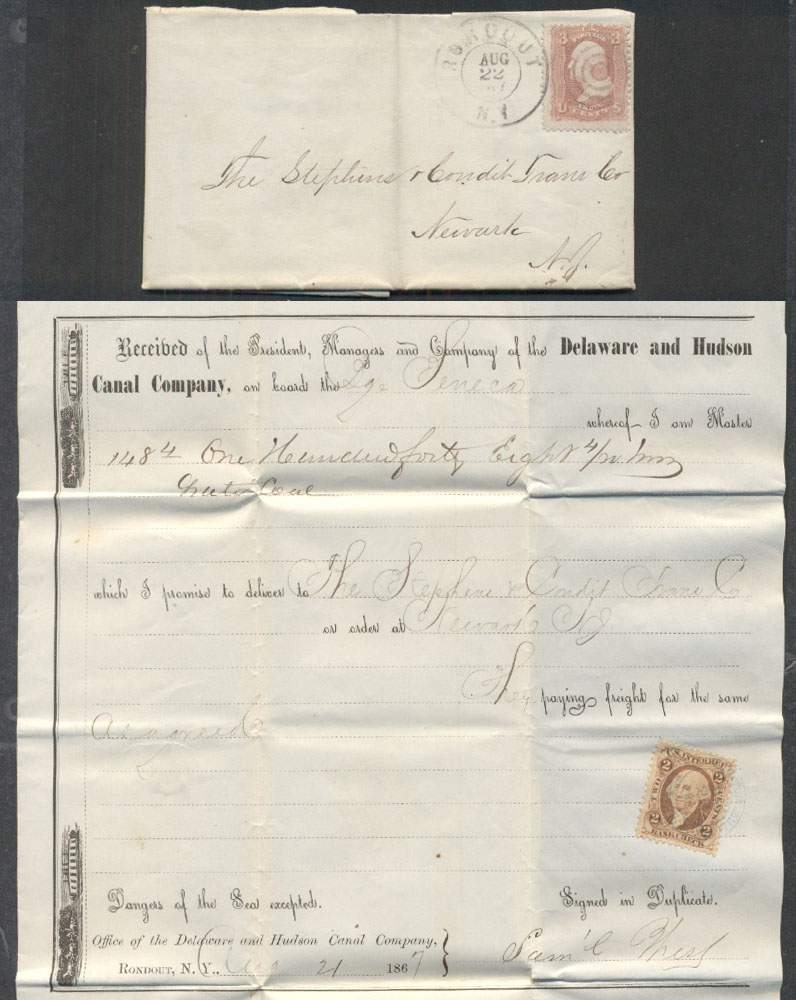 RONDOUT
AUG
22
N.Y
3 U.S. 3
POSTAGE
U CENTS S
The Stephens & Condit Trans Co
Newark
N.J.
Received of the President, Managers and Company of the Delaware and Hudson
Canal Company, on board the Bge Seneca
whereof I am Master
148 4 One Hundred forty Eight 4/20 tons
Grate Coal
which I promise to deliver to The Stephens & Condit Trans Co
or order at Newark NJ.
They paying freight for the same
As agreed
U.S. INTER. REV.
2 2
TWO CENTS
2 2
BANK CHECK
Dangers of the Sea excepted.
Signed in Duplicate.
Office of the Delaware and Hudson Canal Company,
RONDOUT, N. Y., Aug 21 1867
Saml